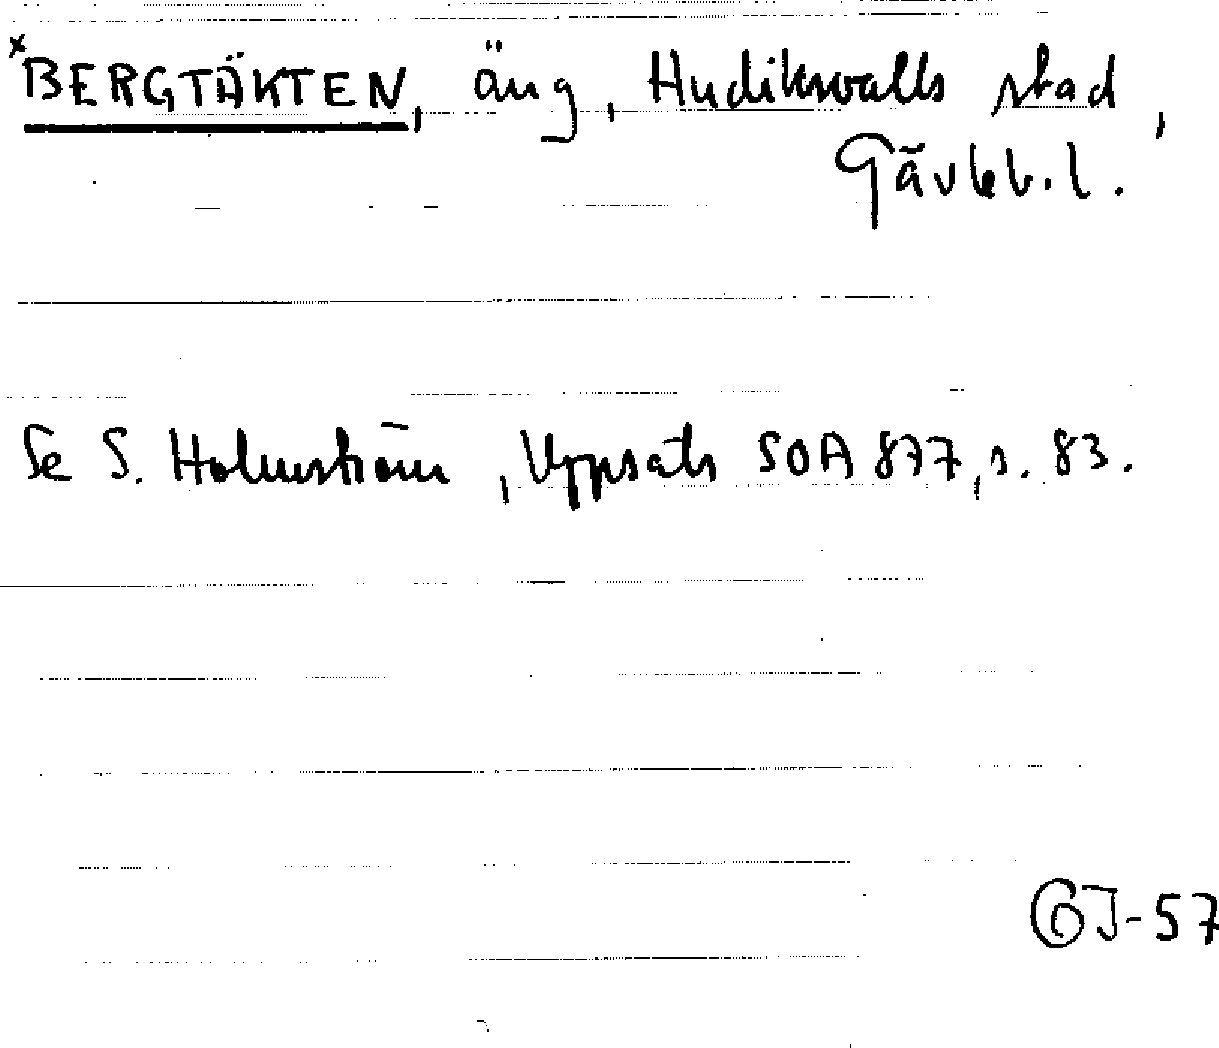 ×BERGTÄKTEN, äng, Hudiksvalls stad,
Gävleb. l.
Se S. Holmström, Uppsats SOA 877, s. 83.
GJ-57